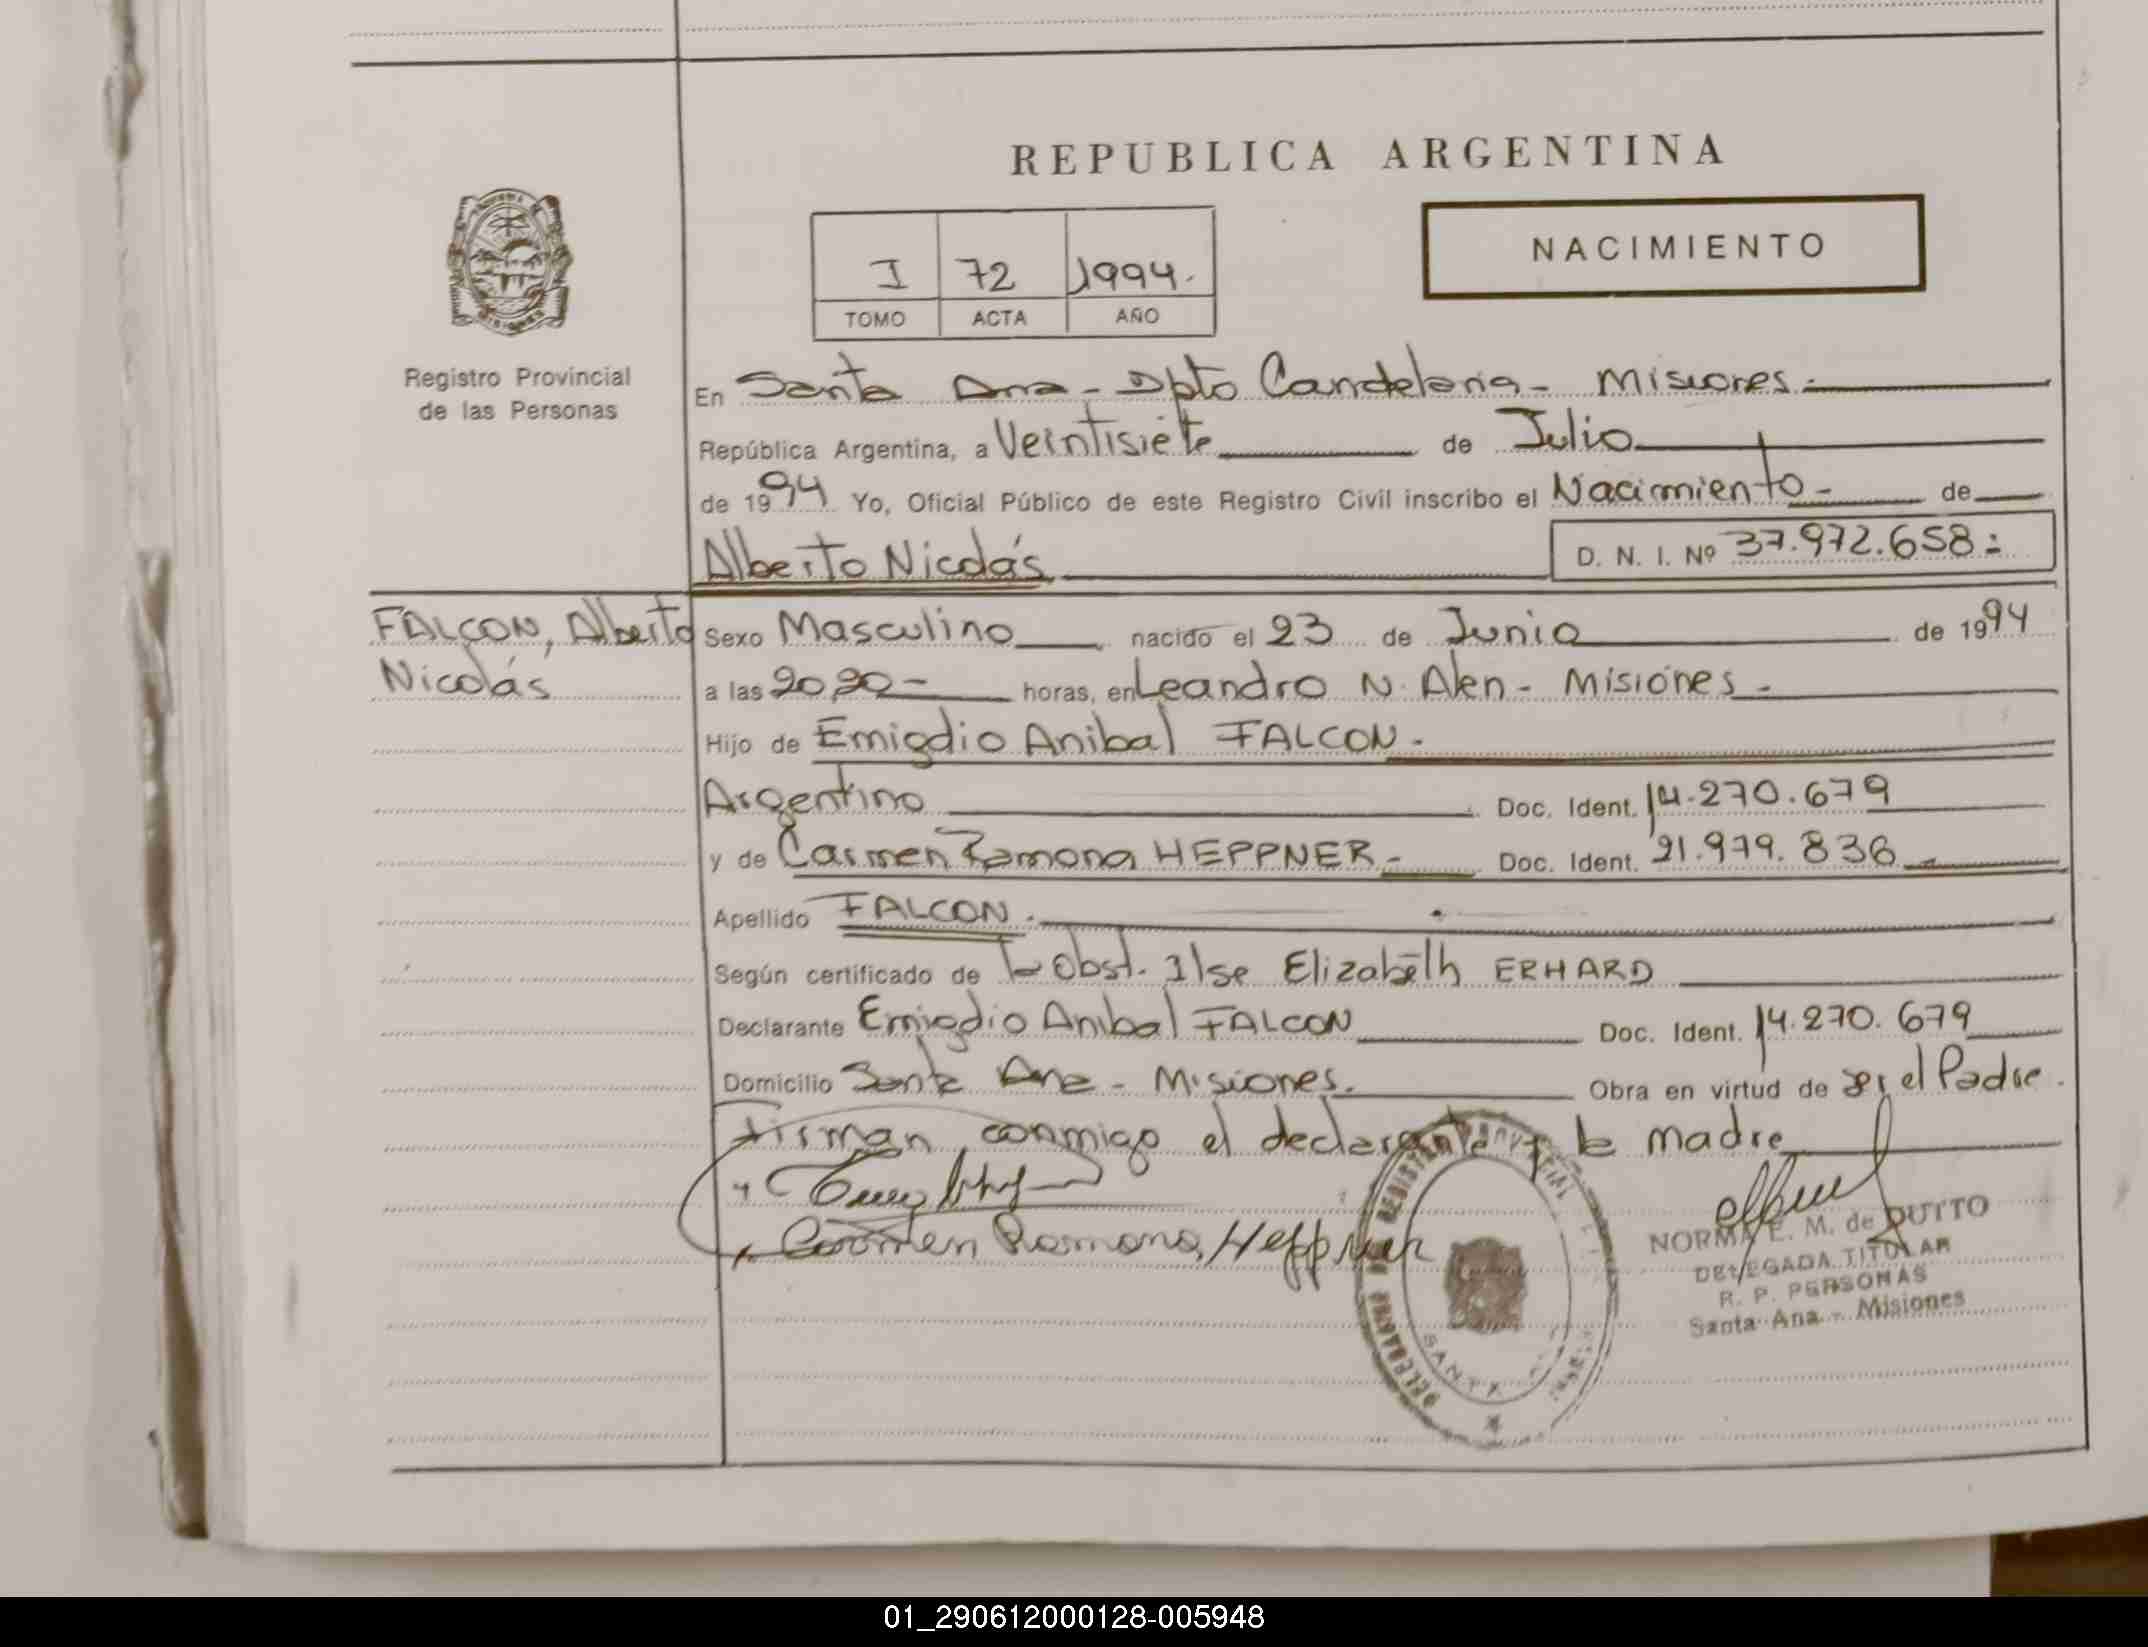 REPUBLICA ARGENTINA
NACIMIENTO
I 72 1994.
TOMO ACTA AÑO
Registro Provincial
de las Personas
En Santa Ana - Dpto Candelaria - Misiones.
República Argentina, a Veintisiete de Julio
de 1994 Yo, Oficial Público de este Registro Civil inscribo el Nacimiento - de
Alberto Nicolás D. N. I. Nº 37.972.658:
FALCON, Alberto
Nicolás
Sexo Masculino nacido el 23 de Junio de 1994
a las 20,20- horas, en Leandro N. Alen - Misiones -
Hijo de Emigdio Anibal FALCON -
Argentino Doc. Ident. 14.270.679
y de Carmen Ramona HEPPNER - Doc. Ident. 21.979.836
Apellido FALCON.
Según certificado de la Obst. Ilse Elizabeth ERHARD
Declarante Emigdio Anibal FALCON Doc. Ident. 14.270.679
Domicilio Santa Ana - Misiones. Obra en virtud de ser el Padre.
Firman conmigo el declarante y la madre
Carmen Ramona Heppner
NORMA E. M. de DUTTO
DELEGADA TITULAR
R. P. PERSONAS
Santa Ana - Misiones
SANTA
01_290612000128-005948